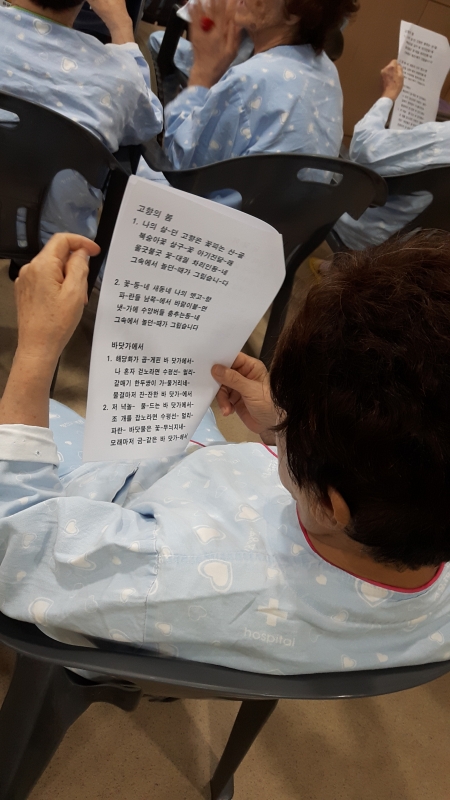 고향의 봄
1. 나의 살-던 고향은 꽃피는 산-골
복숭아꽃 살구-꽃 아기진달-래
울긋불긋 꽃-대궐 차리인동-네
그속에서 놀던-때가 그립습니-다
2. 꽃-동-네 새동네 나의 옛고-향
파-란들 남쪽-에서 바람이불-면
냇-가에 수양버들 춤추는동-네
그속에서 놀던-때가 그립습니다
바닷가에서
1. 해당화가 곱-게핀 바 닷가에서-
나 혼자 걷노라면 수평선- 멀리-
갈매기 한두쌍이 가-물거리네-
물결마저 잔-잔한 바 닷가-에서
2. 저 녁놀- 물-드는 바 닷가에서-
조 개를 잡노라면 수평선- 멀리-
파란- 바닷물은 꽃-무늬지네-
모래마저 금-같은 바 닷가-에서
hospital